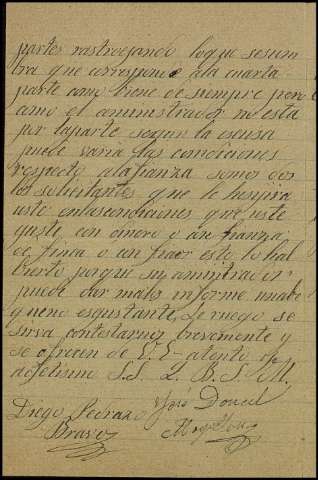 partes rastrojando loque sesem
bra que corresponde ala cuarta
parte como biene de siempre pero
como el aministrador no esta
por laparte segun la escusa
puede varia las condiciones
respecto ala fianza somos dos
los solicitantes que le
uste enlascondiciones que uste
guste, con dinero o con fianza
de finca o un fiaor esto lo hal
bierto porque su aministrador
puede dar malos informe
y neno esqustante, Le ruego se
sirva contestarnos brevemente y
se ofrecen de V. E. atento
afetisimo S.S. Q. B. S. M.
Diego Pedraza José Doncel
Bravo